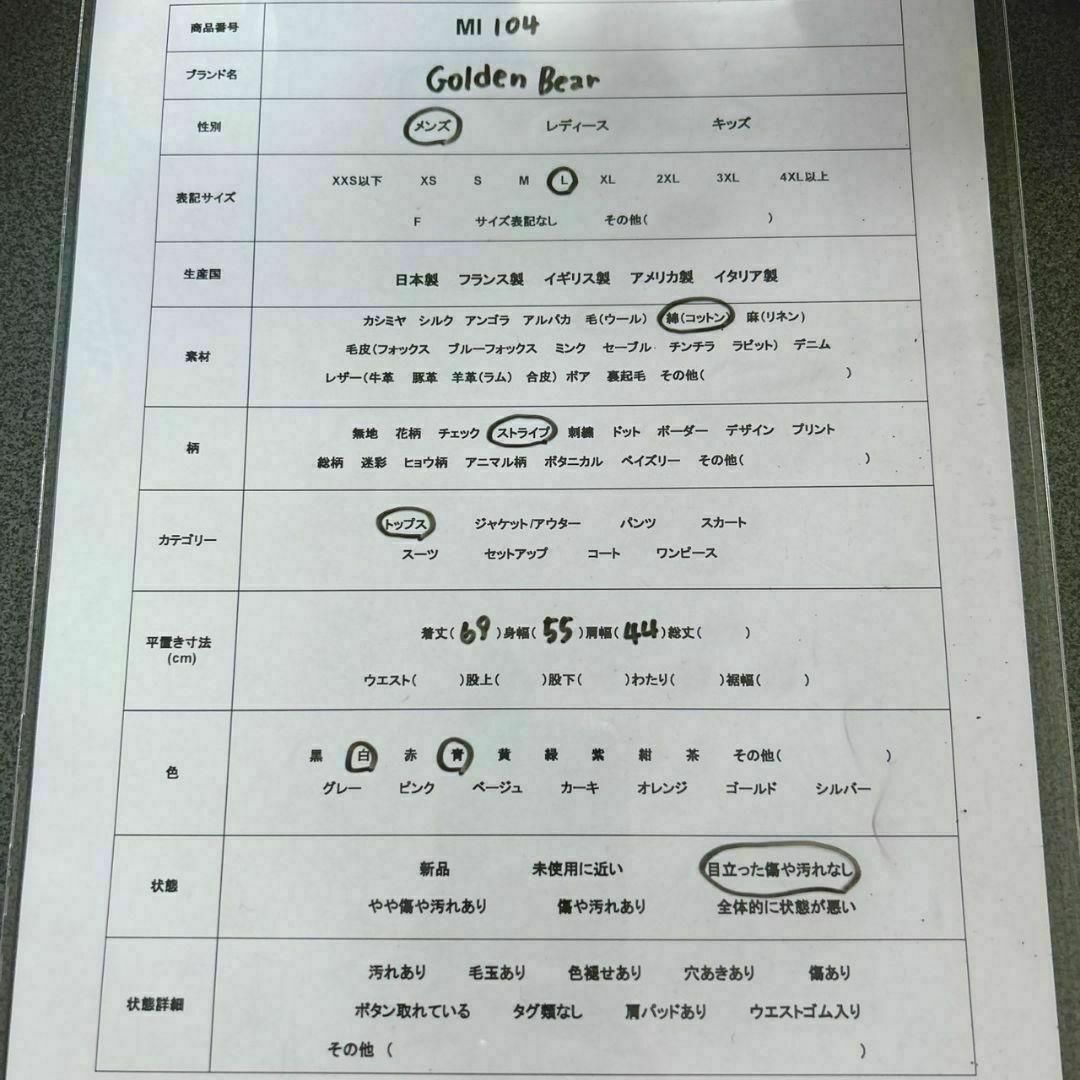 商品番号 MI 104
ブランド名 Golden Bear
性別 メンズ レディース キッズ
XXS以下 XS S M L XL 2XL 3XL 4XL以上
表記サイズ
F サイズ表記なし その他( )
生産国 日本製 フランス製 イギリス製 アメリカ製 イタリア製
カシミヤ シルク アンゴラ アルパカ 毛(ウール) 綿(コットン) 麻(リネン)
素材 毛皮(フォックス ブルーフォックス ミンク セーブル チンチラ ラビット) デニム
レザー(牛革 豚革 羊革(ラム) 合皮) ボア 裏起毛 その他( )
柄 無地 花柄 チェック ストライプ 刺繍 ドット ボーダー デザイン プリント
総柄 迷彩 ヒョウ柄 アニマル柄 ボタニカル ペイズリー その他( )
トップス ジャケット/アウター パンツ スカート
カテゴリー
スーツ セットアップ コート ワンピース
平置き寸法 着丈( 69 )身幅( 55 )肩幅( 44 )総丈( )
(cm)
ウエスト( )股上( )股下( )わたり( )裾幅( )
黒 白 赤 青 黄 緑 紫 紺 茶 その他( )
色
グレー ピンク ベージュ カーキ オレンジ ゴールド シルバー
新品 未使用に近い 目立った傷や汚れなし
状態
やや傷や汚れあり 傷や汚れあり 全体的に状態が悪い
汚れあり 毛玉あり 色褪せあり 穴あきあり 傷あり
状態詳細 ボタン取れている タグ類なし 肩パッドあり ウエストゴム入り
その他 ( )